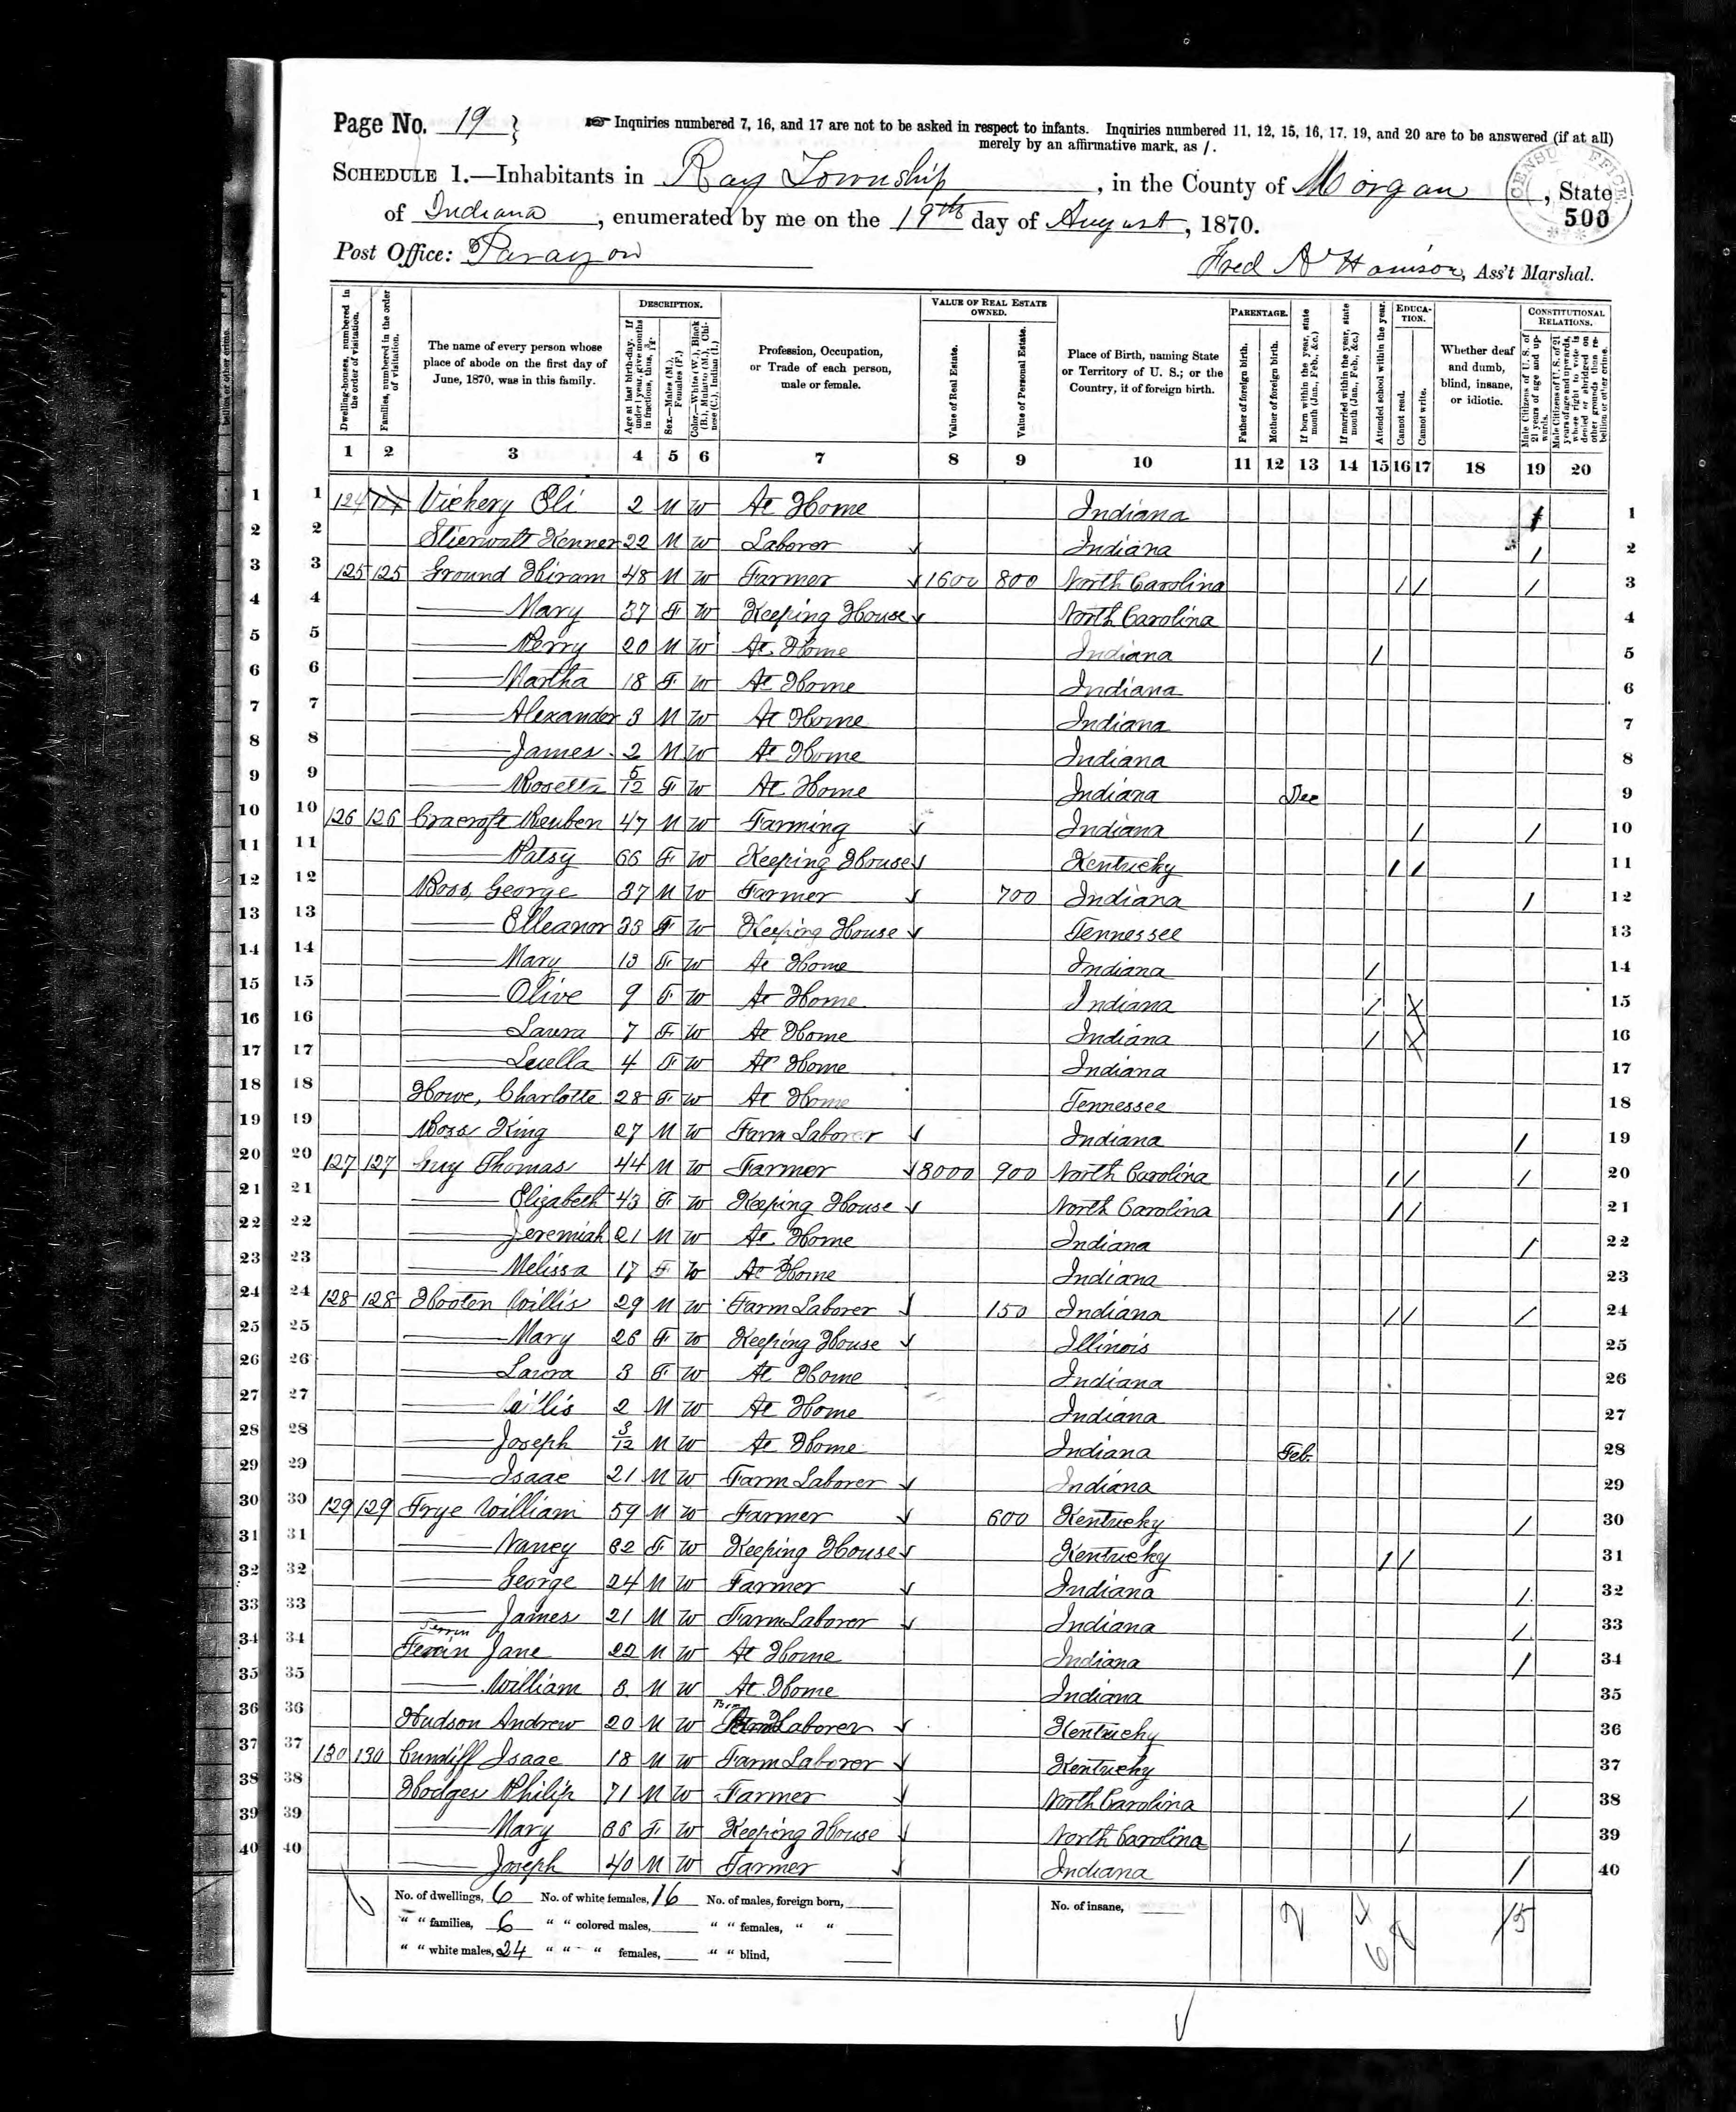 Page No. 19 }
Inquiries numbered 7, 16, and 17 are not to be asked in respect to infants. Inquiries numbered 11, 12, 15, 16, 17, 19, and 20 are to be answered (if at all)
merely by an affirmative mark, as /.
SCHEDULE 1.—Inhabitants in Ray Township, in the County of Morgan, State
of Indiana, enumerated by me on the 19th day of August, 1870.
500
Post Office: Paragon
Fred A Harrison, Ass't Marshal.
Dwelling-houses, numbered in the order of visitation.
Families, numbered in the order of visitation.
The name of every person whose place of abode on the first day of June, 1870, was in this family.
DESCRIPTION.
Age at last birth-day. If under 1 year, give months in fractions, thus, 3/12.
Sex.—Males (M.), Females (F.)
Color.—White (W.), Black (B.), Mulatto (M.), Chinese (C.), Indian (I.)
Profession, Occupation, or Trade of each person, male or female.
VALUE OF REAL ESTATE OWNED.
Value of Real Estate.
Value of Personal Estate.
Place of Birth, naming State or Territory of U. S.; or the Country, if of foreign birth.
PARENTAGE.
Father of foreign birth.
Mother of foreign birth.
If born within the year, state month (Jan., Feb., &c.)
If married within the year, state month (Jan., Feb., &c.)
Attended school within the year.
EDUCATION.
Cannot read.
Cannot write.
Whether deaf and dumb, blind, insane, or idiotic.
CONSTITUTIONAL RELATIONS.
Male Citizens of U. S. of 21 years of age and upwards.
Male Citizens of U. S. of 21 years of age and upwards, whose right to vote is denied or abridged on other grounds than rebellion or other crime.
1 2 3 4 5 6 7 8 9 10 11 12 13 14 15 16 17 18 19 20
1 124 Vickery Eli 2 M W At Home Indiana 1
2 Stierwalt Henner 22 M W Laborer Indiana / 2
3 125 125 Ground Hiram 48 M W Farmer 1600 800 North Carolina / / / 3
4 Mary 37 F W Keeping House North Carolina 4
5 Perry 20 M W At Home Indiana / 5
6 Martha 18 F W At Home Indiana 6
7 Alexander 3 M W At Home Indiana 7
8 James 2 M W At Home Indiana 8
9 Rosetta 5/12 F W At Home Indiana Dec 9
10 126 126 Cracroft Reuben 47 M W Farming Indiana / / 10
11 Patsy 66 F W Keeping House Kentucky / / 11
12 Ross, George 37 M W Farmer 700 Indiana / 12
13 Elleanor 33 F W Keeping House Tennessee 13
14 Mary 13 F W At Home Indiana / 14
15 Olive 9 F W At Home Indiana / X 15
16 Laura 7 F W At Home Indiana / X 16
17 Luella 4 F W At Home Indiana 17
18 Howe, Charlotte 28 F W At Home Tennessee 18
19 Ross King 27 M W Farm Laborer Indiana / 19
20 127 127 Guy Thomas 44 M W Farmer 8000 900 North Carolina / / / 20
21 Elizabeth 43 F W Keeping House North Carolina / / 21
22 Jeremiah 21 M W At Home Indiana / 22
23 Melissa 17 F W At Home Indiana 23
24 128 128 Hooten Willis 29 M W Farm Laborer 150 Indiana / / / 24
25 Mary 26 F W Keeping House Illinois 25
26 Laura 3 F W At Home Indiana 26
27 Willis 2 M W At Home Indiana 27
28 Joseph 3/12 M W At Home Indiana Feb. 28
29 Isaac 21 M W Farm Laborer Indiana 29
30 129 129 Frye William 59 M W Farmer 600 Kentucky / 30
31 Nancy 62 F W Keeping House Kentucky / / 31
32 George 24 M W Farmer Indiana / 32
33 James 21 M W Farm Laborer Indiana / 33
Ferrin
34 Ferrin Jane 22 M W At Home Indiana / 34
35 William 3 M W At Home Indiana 35
36 Hudson Andrew 20 M W Laborer Kentucky 36
37 130 130 Cundiff Isaac 18 M W Farm Laborer Kentucky 37
38 Hodges Philip 71 M W Farmer North Carolina / 38
39 Mary 66 F W Keeping House North Carolina / 39
40 Joseph 40 M W Farmer Indiana / 40
No. of dwellings, 6 No. of white females, 16 No. of males, foreign born, No. of insane,
" " families, 6 " " colored males, " " females, " "
" " white males, 24 " " " females, " " blind,
2 15